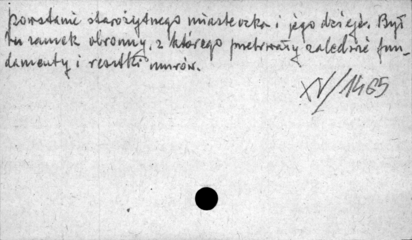 powstanie starożytnego miasteczka i jego dzieje. Był
tu zamek obronny, z którego przetrwały zaledwie fun-
damenty i resztki murów.
XV/1465